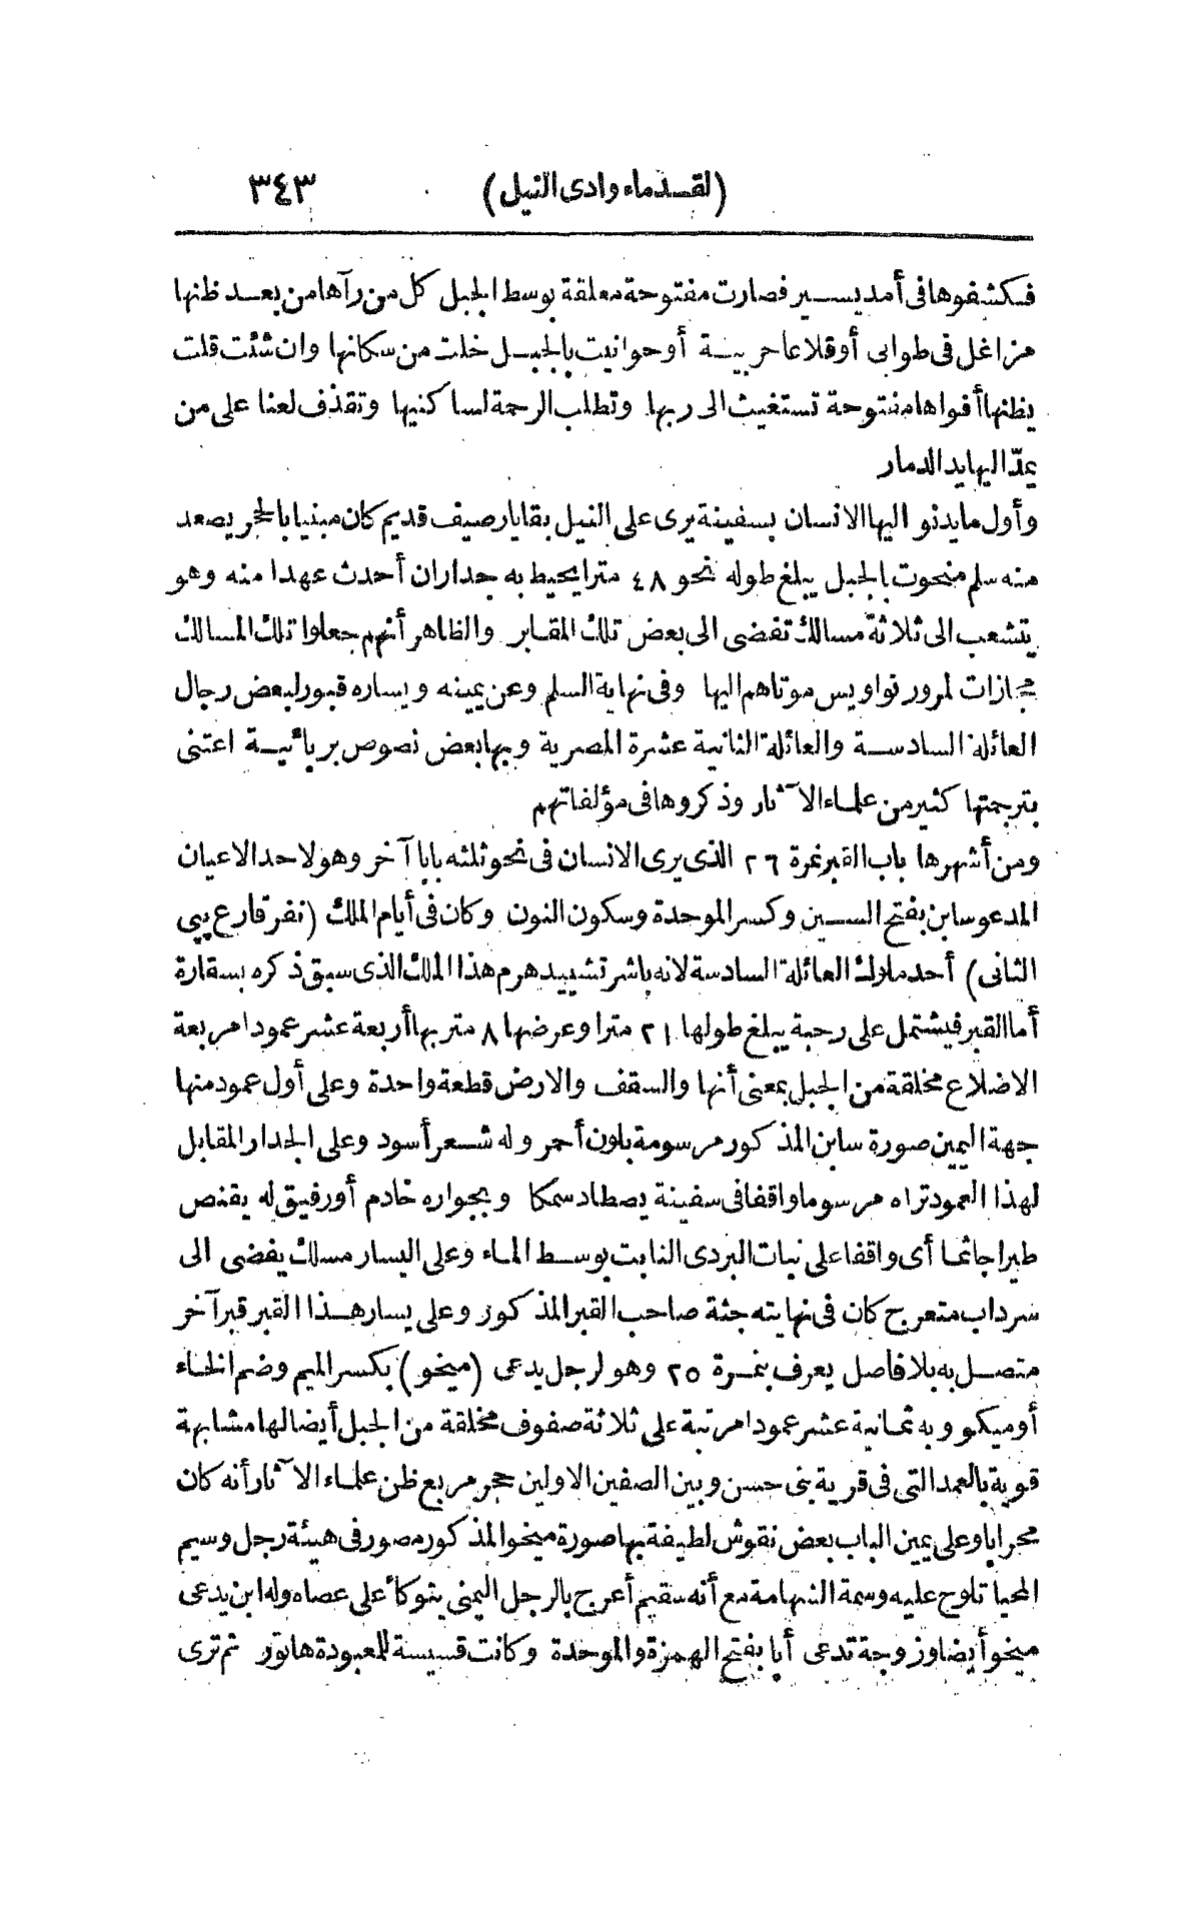 (لقدماء وادى النيل) ٣٤٣
فكشفوها فى أمد يسير فصارت مفتوحة معلقة بوسط الجبل كل من رآها من بعد ظنها
مزاغل فى طوابى أو قلاعا حربية أو حوانيت بالجبل خلت من سكانها وان شئت قلت
يظنها أفواها مفتوحة تستغيث الى ربها وتطلب الرحمة لساكنيها وتقذف لعنا على من
يمدّ اليها يد الدمار
وأول ما يدنو اليها الانسان بسفينة يرى على النيل بقايا رصيف قديم كان مبنيا بالحجر يصعد
منه سلم منحوت بالجبل يبلغ طوله نحو ٤٨ مترا يحيط به جداران أحدث عهدا منه وهو
يتشعب الى ثلاثة مسالك تفضى الى بعض تلك المقابر والظاهر أنهم جعلوا تلك المسالك
مجازات لمرور نواويس موتاهم اليها وفى نهاية السلم وعن يمينه ويساره قبور لبعض رجال
العائلة السادسة والعائلة الثانية عشرة المصرية وبها بعض نصوص بربائية اعتنى
بترجمتها كثير من علماء الآثار وذكروها فى مؤلفاتهم
ومن أشهرها باب القبر نمرة ٢٦ الذى يرى الانسان فى نحو ثلثه بابا آخر وهو لاحد الاعيان
المدعو سابن بفتح السين وكسر الموحدة وسكون النون وكان فى أيام الملك (نفرقارع پيى
الثانى) أحد ملوك العائلة السادسة لانه باشر تشييد هرم هذا الملك الذى سبق ذكره بسقارة
أما القبر فيشتمل على رحبة يبلغ طولها ٢١ مترا وعرضها ٨ متر بها أربعة عشر عمودا مربعة
الاضلاع مخلقة من الجبل بمعنى أنها والسقف والارض قطعة واحدة وعلى أول عمود منها
جهة اليمين صورة سابن المذكور مرسومة بلون أحمر وله شعر أسود وعلى الجدار المقابل
لهذا العمود تراه مرسوما واقفا فى سفينة يصطاد سمكا وبجواره خادم أو رفيق له يقنص
طيرا جاثما أى واقفا على نبات البردى النابت بوسط الماء وعلى اليسار مسلك يفضى الى
سرداب متعرج كان فى نهايته جثة صاحب القبر المذكور وعلى يسار هذا القبر قبر آخر
متصل به بلا فاصل يعرف بنمرة ٢٥ وهو لرجل يدعى (ميخو) بكسر الميم وضم الخاء
أو ميكو وبه ثمانية عشر عمودا مرتبة على ثلاثة صفوف مخلقة من الجبل أيضا لها مشابهة
قوية بالعمد التى فى قرية بنى حسن وبين الصفين الاولين حجر مربع ظن علماء الآثار أنه كان
محرابا وعلى يمين الباب بعض نقوش لطيفة بها صورة ميخو المذكور مصور فى هيئة رجل وسيم
المحيا تلوح عليه وسمة الشهامة مع أنه سقيم أعرج بالرجل اليمنى يتوكأ على عصاه وله ابن يدعى
ميخو أيضا وزوجة تدعى أبا بفتح الهمزة والموحدة وكانت قسيسة للمعبودة هاتور ثم ترى